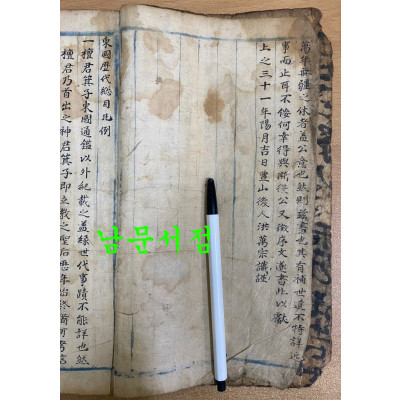 萬年無疆之休者盖公意也然則玆書也其有補世道不特詳
事而止耳不佞何幸得與斯役公又徵序文遂書此以獻
上之三十一年陽月吉日豊山後人洪萬宗謹
東國歷代總目凡例
一檀君箕子東國通鑑以外紀載之盖緣世代事蹟不能詳也然
檀君乃首出之神君箕子即立敎之聖后歷年始終皆可考
남문서점